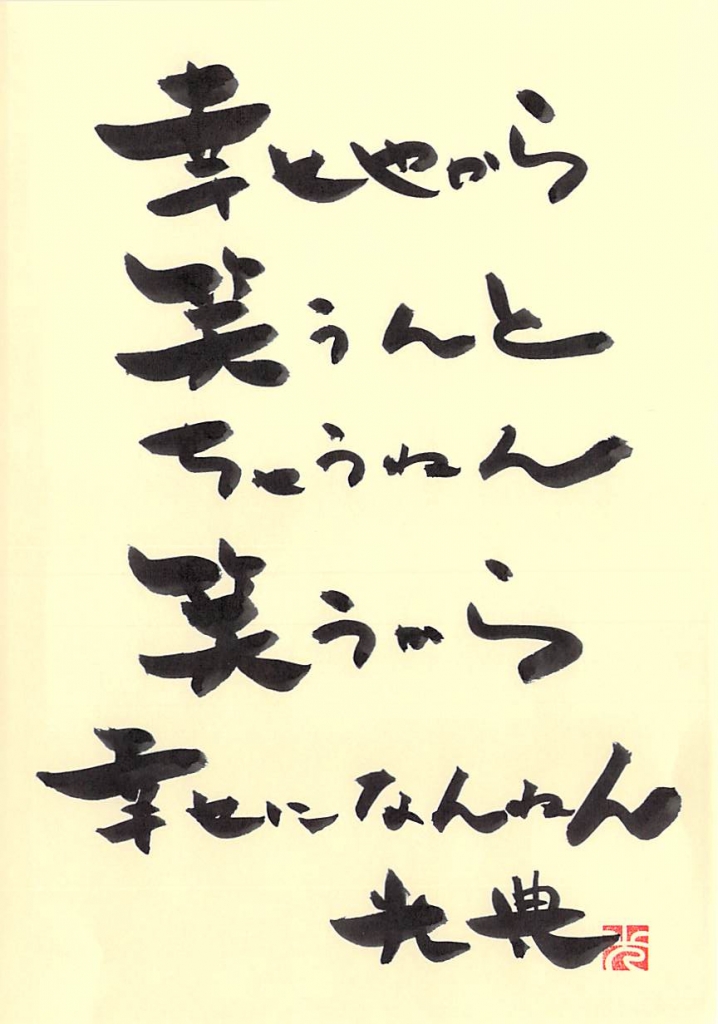 幸せやから
笑うんと
ちゃうねん
笑うから
幸せになんねん
光典